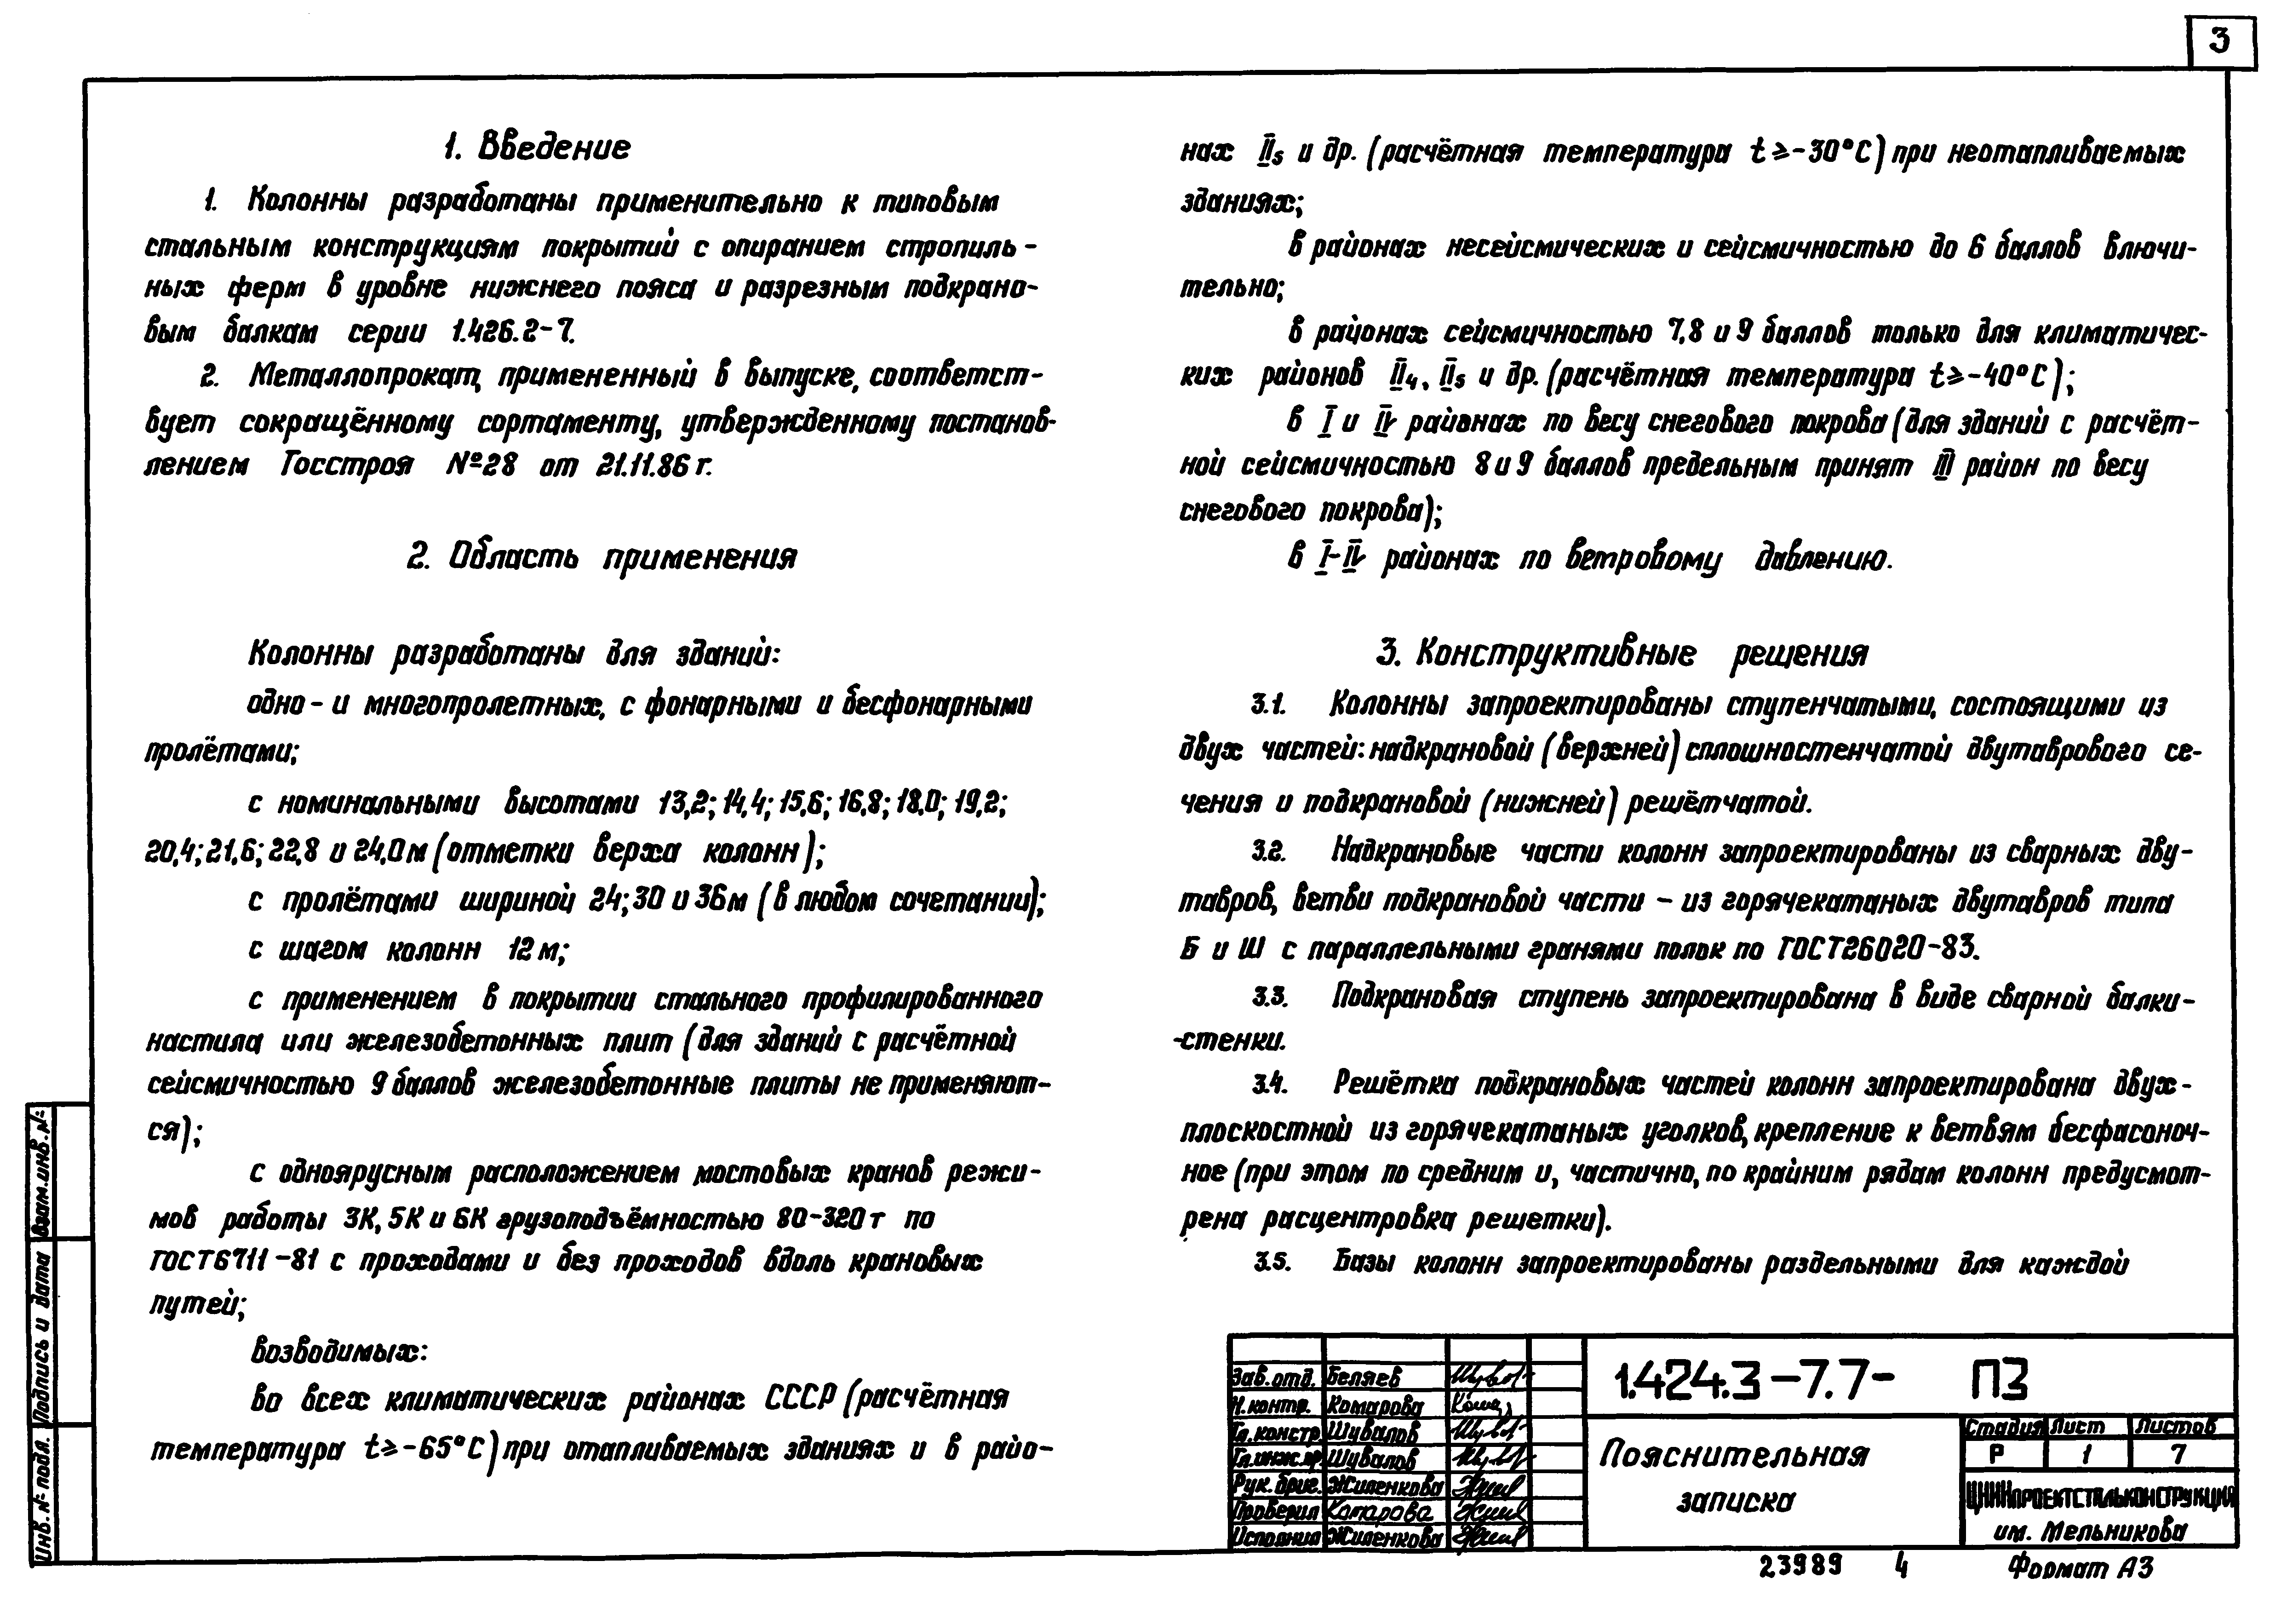 3
1. Введение
1. Колонны разработаны применительно к типовым
стальным конструкциям покрытий с опиранием стропиль-
ных ферм в уровне нижнего пояса и разрезным подкрано-
вым балкам серии 1.426.2-7.
2. Металлопрокат, примененный в выпуске, соответст-
вует сокращённому сортаменту, утвержденному постанов-
лением Госстроя №28 от 21.11.86 г.
2. Область применения
Колонны разработаны для зданий:
одно- и многопролетных, с фонарными и бесфонарными
пролётами;
с номинальными высотами 13,2; 14,4; 15,6; 16,8; 18,0; 19,2;
20,4; 21,6; 22,8 и 24,0 м (отметки верха колонн);
с пролётами шириной 24; 30 и 36 м (в любом сочетании);
с шагом колонн 12 м;
с применением в покрытии стального профилированного
настила или железобетонных плит (для зданий с расчётной
сейсмичностью 9 баллов железобетонные плиты не применяют-
ся);
с одноярусным расположением мостовых кранов режи-
мов работы 3К, 5К и 6К грузоподъёмностью 80-320 т по
ГОСТ 6711-81 с проходами и без проходов вдоль крановых
путей;
возводимых:
во всех климатических районах СССР (расчётная
температура t ⩾ -65°С) при отапливаемых зданиях и в райо-
нах II₅ и др. (расчётная температура t ⩾ -30°С) при неотапливаемых
зданиях;
в районах несейсмических и сейсмичностью до 6 баллов влючи-
тельно;
в районах сейсмичностью 7,8 и 9 баллов только для климатичес-
ких районов II₄, II₅ и др. (расчётная температура t ⩾ -40°С);
в I и IV районах по весу снегового покрова (для зданий с расчёт-
ной сейсмичностью 8 и 9 баллов предельным принят III район по весу
снегового покрова);
в I-IV районах по ветровому давлению.
3. Конструктивные решения
3.1. Колонны запроектированы ступенчатыми, состоящими из
двух частей: надкрановой (верхней) сплошностенчатой двутаврового се-
чения и подкрановой (нижней) решётчатой.
3.2. Надкрановые части колонн запроектированы из сварных дву-
тавров, ветви подкрановой части - из горячекатаных двутавров типа
Б и Ш с параллельными гранями полок по ГОСТ 26020-83.
3.3. Подкрановая ступень запроектирована в виде сварной балки-
-стенки.
3.4. Решётка подкрановых частей колонн запроектирована двух-
плоскостной из горячекатаных уголков, крепление к ветвям бесфасоноч-
ное (при этом по средним и, частично, по крайним рядам колонн предусмот-
рена расцентровка решетки).
3.5. Базы колонн запроектированы раздельными для каждой
Взам. инв. №
Подпись и дата
Инв. № подл.
Зав. отд. Беляев
Н. контр. Комарова
Гл. констр. Шувалов
Гл. инж. пр. Шувалов
Рук. бриг. Жиленкова
Проверил Комарова
Исполнил Жиленкова
1.424.3-7.7- ПЗ
Пояснительная
записка
Стадия Лист Листов
Р 1 7
ЦНИИПРОЕКТСТАЛЬКОНСТРУКЦИЯ
им. Мельникова
23989 4 Формат А3